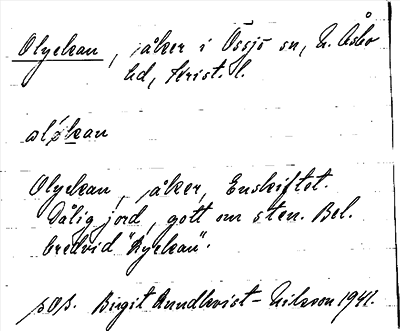 Olyckan, åker i Össjö sn, N. Åsbo
hd, Krist. l.
Olyckan, åker, Enskiftet.
Dålig jord, gott om sten. Bel.
bredvid "Nyckan".
Birgit Rundkvist-Nilsson 1941.